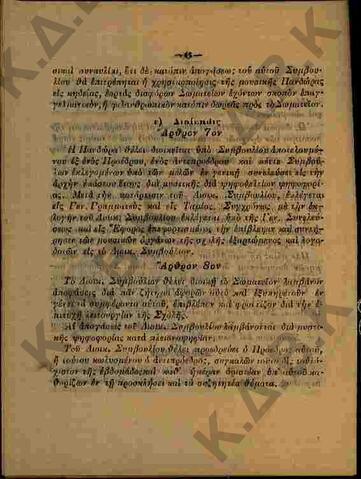 —6—
σικαὶ συναυλίαι, ἔτι δὲ κατόπιν ἀποφάσεως τοῦ αὐτοῦ Συμβου-
λίου θὰ ἐπιτρέπηται ἡ χρησιμοποίησις τῆς μουσικῆς Πανδώρας
εἰς κηδείας, ἑορτὰς διαφόρων Σωματείων ἐχόντων σκοπὸν ἐπαγ-
γελματικὸν, ἢ φιλανθρωπικὸν κατόπιν δωρεᾶς πρὸς τὸ Σωματεῖον.
ε) Διοίκησις
Ἄρθρον 7ον
Ἡ Πανδώρα θέλει διοικεῖται ὑπὸ Συμβουλίου ἀποτελουμέ-
νου ἐξ ἑνὸς Προέδρου, ἑνὸς ἀντιπροέδρου καὶ πέντε Συμβού-
λων ἐκλεγομένων ὑπὸ τῶν μελῶν ἐν γενικῇ συνελεύσει εἰς τὴν
ἀρχὴν ἑκάστου ἔτους διὰ μυστικῆς διὰ ψηφοδελτίων ψηφοφορίας.
Μετὰ τὴν κατάρτισιν τοῦ Διοικ. Συμβουλίου, ἐκλέγεται
εἷς Γεν. Γραμματεὺς καὶ εἷς Ταμίας. Συγχρόνως μὲ τὴν ἐκ-
λογὴν τοῦ Διοικ. Συμβουλίου ἐκλέγεται ὑπὸ τῆς Γεν. Συνελεύ-
σεως καὶ εἷς Ἔφορος ἐπιφορτισμένος τὴν ἐπίβλεψιν καὶ συντή-
ρησιν τῶν μουσικῶν ὀργάνων τῆς σχολῆς ἐξαρτώμενος καὶ λογο-
δοτῶν εἰς τὸ Διοικ. Συμβούλιον.
Ἄρθρον 8ον
Τὸ Διοικ. Συμβούλιον θέλει διοικῇ τὸ Σωματεῖον λαμβάνον
ἀποφάσεις διὰ πᾶν ζήτημα ἀφορῶν αὐτὸ καὶ ἐξυπηρετοῦν ἐν
γένει τὰ συμφέροντα αὐτοῦ, ἐπιβλέπει καὶ φροντίζει διὰ τὴν ἐ-
πιτυχῆ λειτουργίαν τῆς Σχολῆς.
Αἱ ἀποφάσεις τοῦ Διοικ. Συμβουλίου λαμβάνονται διὰ μυστικ-
ῆς ψηφοφορίας κατὰ πλειονοψηφίαν.
Τοῦ Διοικ. Συμβουλίου θέλει προεδρεύει ὁ Πρόεδρος αὐτοῦ,
ἢ τούτου κωλυομένου ὁ ἀντιπρόεδρος, συγκαλῶν αὐτὸ δὶς τοὐλά-
χιστον τῆς ἑβδομάδος καθ' ἡμέραν ὁρισθεῖσαν ὑπ' αὐτοῦ κα-
θορίζων ἐν τῇ προσκλήσει καὶ τὰ συζητητέα θέματα.
Κ.Δ.Β.Κ.